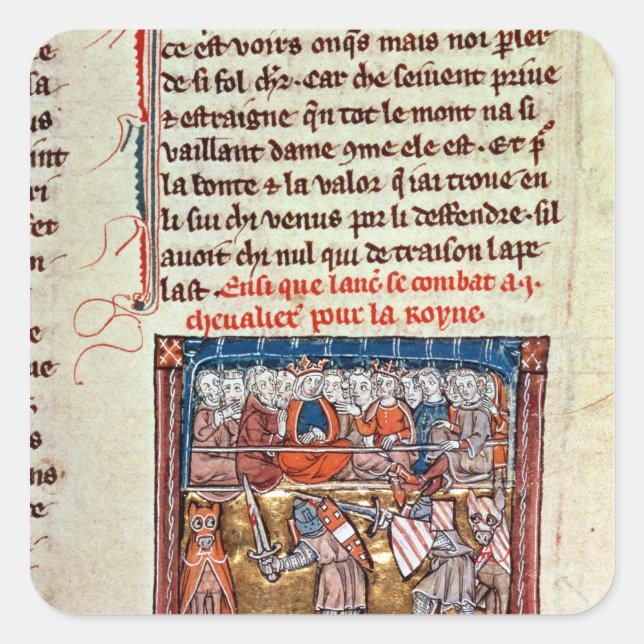 ce
sa
us
int
ri
fet
n-
ue
s
ns
e
ce est voirs onq̃s mais noi p̲ler
de si fol chr̃. Car che seiuent priue
⁊ estraigne qñ tot le mont na si
vaillant dame ꝯme ele est. Et p̃
la bonte ⁊ la valor q̃ iai troue en
li sui chi venus por li deffendre. sil
auoit chi nul qui de traison lape
last. Ensi que lanc̃ se combat a .j.
cheualier pour la Royne.